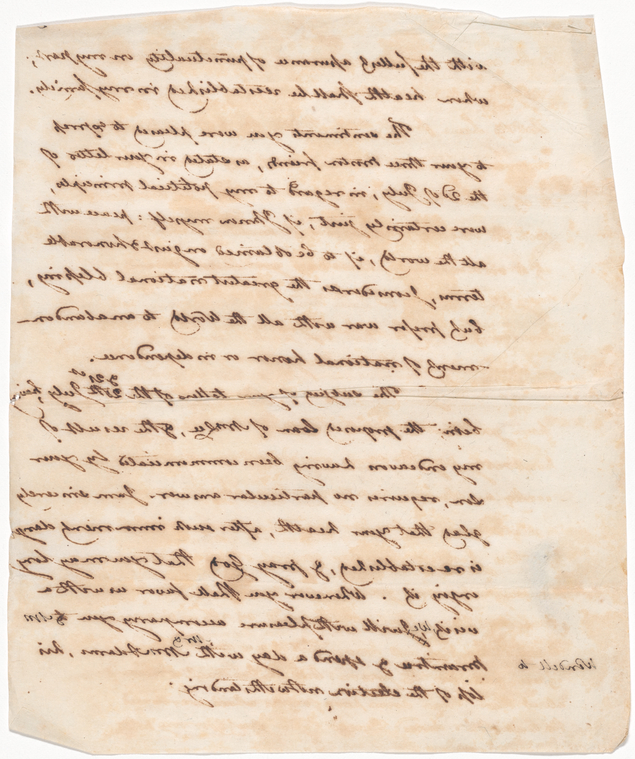 with the fullest assurance of punctuality in my
when health shall be reestablished in my family.
The sentiment you were pleased to express
to your three boston friends, as stated in your letter of
the 2d of July, in regard to my political principles,
were certainly just, if I know myself: peace with
all the world, if to be obtained on just & honorable
terms, I consider the greatest national blessing,
but prefer war with all the World to an abandon-
ment of national honor or independence.
The subject of your letters of the July
been the proposed loan of & the result of
my endeavor having been communicated by your
son, requires no particular answer. I am sincerely
glad that your health, after such
is reestablished, & pray God that you may long
enjoy it. Whenever you shall favor us with a
visit, We shall with pleasure accompany you to
braintree & spend a day with Mr Adams, his
loss of the election notwithstanding
Wendell to